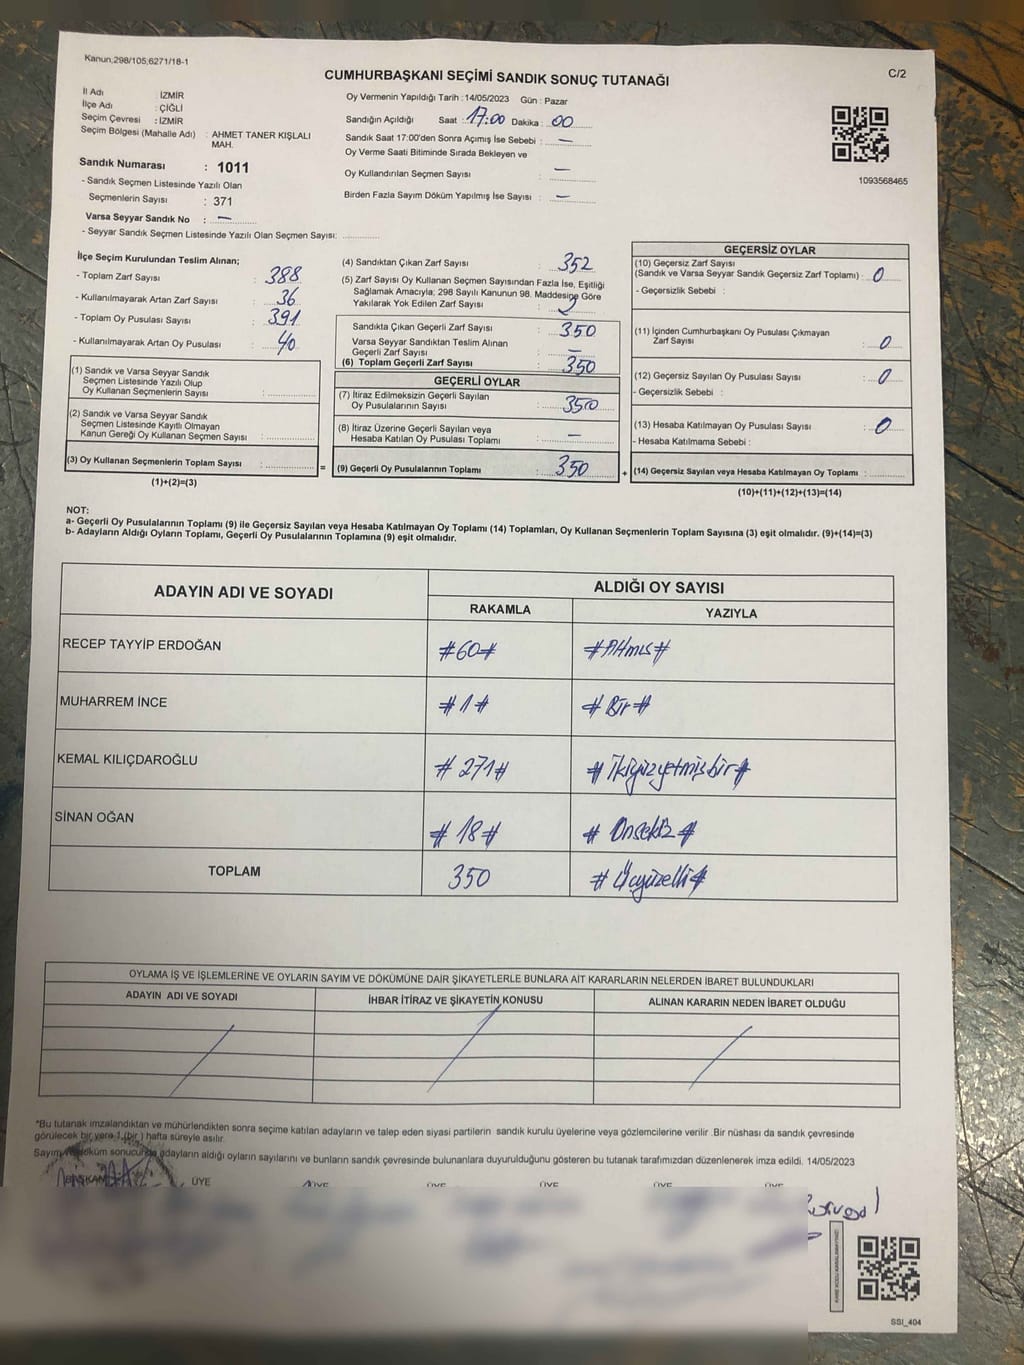 Kanun,298/105,6271/18-1
CUMHURBAŞKANI SEÇİMİ SANDIK SONUÇ TUTANAĞI
C/2
İl Adı : İZMİR
İlçe Adı : ÇİĞLİ
Seçim Çevresi : İZMİR
Seçim Bölgesi (Mahalle Adı) : AHMET TANER KIŞLALI MAH.
Sandık Numarası : 1011
- Sandık Seçmen Listesinde Yazılı Olan
Seçmenlerin Sayısı : 371
Varsa Seyyar Sandık No : —
- Seyyar Sandık Seçmen Listesinde Yazılı Olan Seçmen Sayısı:
Oy Vermenin Yapıldığı Tarih :14/05/2023 Gün : Pazar
Sandığın Açıldığı Saat : 17:00 Dakika : 00
Sandık Saat 17:00'den Sonra Açımış İse Sebebi : —
Oy Verme Saati Bitiminde Sırada Bekleyen ve
Oy Kullandırılan Seçmen Sayısı : —
Birden Fazla Sayım Döküm Yapılmış İse Sayısı : —
1093568465
İlçe Seçim Kurulundan Teslim Alınan;
- Toplam Zarf Sayısı : 388
- Kullanılmayarak Artan Zarf Sayısı : 36
- Toplam Oy Pusulası Sayısı : 391
- Kullanılmayarak Artan Oy Pusulası : 40
(1) Sandık ve Varsa Seyyar Sandık
Seçmen Listesinde Yazılı Olup
Oy Kullanan Seçmenlerin Sayısı :
(2) Sandık ve Varsa Seyyar Sandık
Seçmen Listesinde Kayıtlı Olmayan
Kanun Gereği Oy Kullanan Seçmen Sayısı :
(3) Oy Kullanan Seçmenlerin Toplam Sayısı :
(1)+(2)=(3)
(4) Sandıktan Çıkan Zarf Sayısı : 352
(5) Zarf Sayısı Oy Kullanan Seçmen Sayısından Fazla İse, Eşitliği
Sağlamak Amacıyla; 298 Sayılı Kanunun 98. Maddesine Göre
Yakılarak Yok Edilen Zarf Sayısı : 2
Sandıkta Çıkan Geçerli Zarf Sayısı : 350
Varsa Seyyar Sandıktan Teslim Alınan
Geçerli Zarf Sayısı : —
(6) Toplam Geçerli Zarf Sayısı : 350
GEÇERLİ OYLAR
(7) İtiraz Edilmeksizin Geçerli Sayılan
Oy Pusulalarının Sayısı : 350
(8) İtiraz Üzerine Geçerli Sayılan veya
Hesaba Katılan Oy Pusulası Toplamı : —
=
(9) Geçerli Oy Pusulalarının Toplamı : 350
+
GEÇERSİZ OYLAR
(10) Geçersiz Zarf Sayısı
(Sandık ve Varsa Seyyar Sandık Geçersiz Zarf Toplamı) : 0
- Geçersizlik Sebebi :
(11) İçinden Cumhurbaşkanı Oy Pusulası Çıkmayan
Zarf Sayısı : 0
(12) Geçersiz Sayılan Oy Pusulası Sayısı : 0
- Geçersizlik Sebebi :
(13) Hesaba Katılmayan Oy Pusulası Sayısı : 0
- Hesaba Katılmama Sebebi :
(14) Geçersiz Sayılan veya Hesaba Katılmayan Oy Toplamı :
(10)+(11)+(12)+(13)=(14)
NOT:
a- Geçerli Oy Pusulalarının Toplamı (9) ile Geçersiz Sayılan veya Hesaba Katılmayan Oy Toplamı (14) Toplamları, Oy Kullanan Seçmenlerin Toplam Sayısına (3) eşit olmalıdır. (9)+(14)=(3)
b- Adayların Aldığı Oyların Toplamı, Geçerli Oy Pusulalarının Toplamına (9) eşit olmalıdır.
ADAYIN ADI VE SOYADI
ALDIĞI OY SAYISI
RAKAMLA YAZIYLA
RECEP TAYYİP ERDOĞAN #60# #Altmış#
MUHARREM İNCE #1# #Bir#
KEMAL KILIÇDAROĞLU #271# #İkiyüzyetmişbir#
SİNAN OĞAN #18# #Onsekiz#
TOPLAM 350 #Üçyüzelli#
OYLAMA İŞ VE İŞLEMLERİNE VE OYLARIN SAYIM VE DÖKÜMÜNE DAİR ŞİKAYETLERLE BUNLARA AİT KARARLARIN NELERDEN İBARET BULUNDUKLARI
ADAYIN ADI VE SOYADI İHBAR İTİRAZ VE ŞİKAYETİN KONUSU ALINAN KARARIN NEDEN İBARET OLDUĞU
*Bu tutanak imzalandıktan ve mühürlendikten sonra seçime katılan adayların ve talep eden siyasi partilerin sandık kurulu üyelerine veya gözlemcilerine verilir .Bir nüshası da sandık çevresinde
görülecek bir yere 1 (bir ) hafta süreyle asılır.
Sayım ve döküm sonucunda adayların aldığı oyların sayılarını ve bunların sandık çevresinde bulunanlara duyurulduğunu gösteren bu tutanak tarafımızdan düzenlenerek imza edildi. 14/05/2023
BAŞKAN ÜYE ÜYE ÜYE ÜYE ÜYE ÜYE
SSI_404